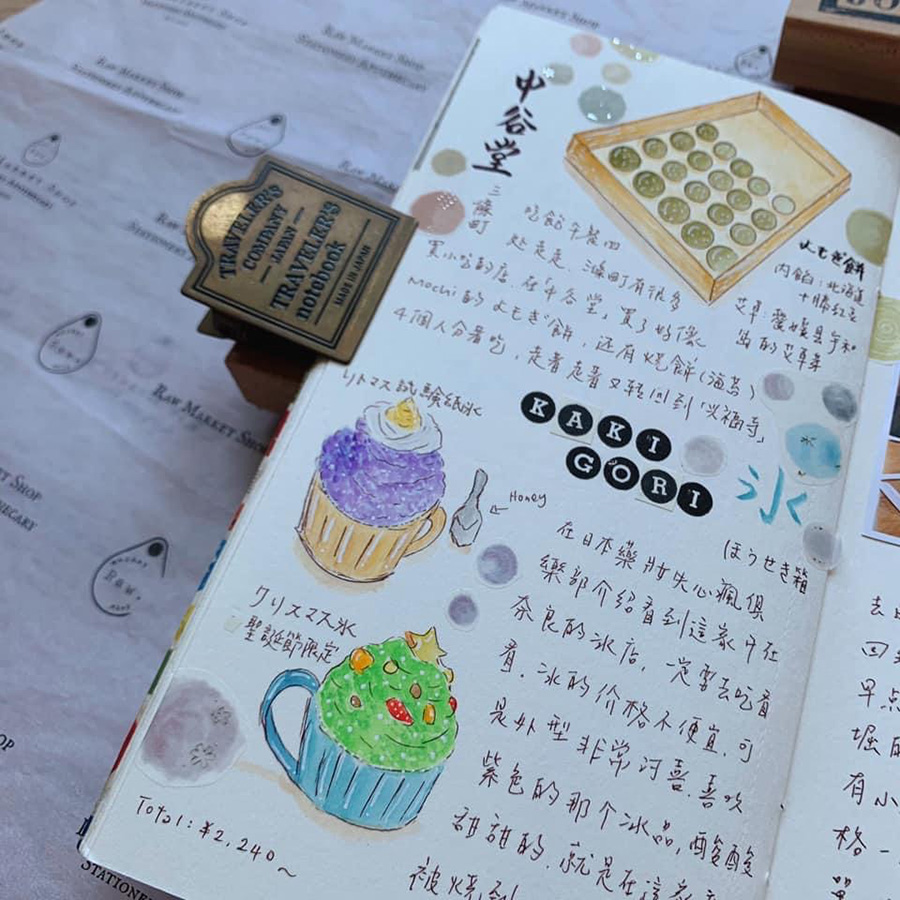 中谷堂
三條町
吃飽午餐四
处走走.三條町有很多
買小吃的店.在中谷堂,買了好像
mochi的よもぎ餅,还有烧餅(海苔)
4個人分著吃,走着走着又轉回到「興福寺」
よもぎ餅
内餡:北海道
十勝紅豆
艾草:愛媛县宇和
島的艾草來
TRAVELER'S
COMPANY
JAPAN
TRAVELER'S
notebook
MADE IN JAPAN
リトマス試験紙氷
Honey
KAKI
GORI
氷
ほうせき箱
在日本藥妝失心瘋俱
樂部介绍看到這家開在
奈良的冰店,一定要去吃看
看.冰的价格不便宜,可
是外型非常討喜.喜欢
紫色的那个冰品,酸酸
甜甜的.就是在這家
被燒到
クリスマス氷
聖誕節限定
Total:¥2,240~
去
回
早点
堀
有小
格一
單
RAW MARKET SHOP
STATIONERY APOTHECARY
RAW MARKET SHOP
STATIONERY APOTHECARY
RAW MARKET SHOP